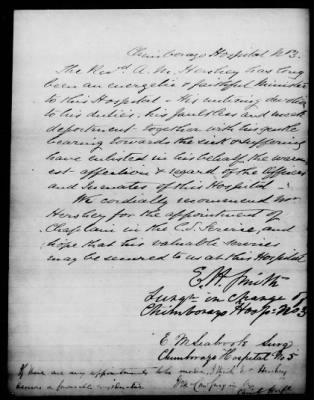 Chimborazo Hospital No 3.
The Revd A. M. Hershey has long
been an energetic & faithful minister
to this Hospital - His untiring devotion
to his duties, his faultless and
deportment together with his gentle
bearing towards the sick & suffering
have enlisted in his behalf the warm-
est affection & regard of the Officers
and Inmates of this Hospital -
We cordially recommend Mr
Hershey for the appointment of
Chaplain in the C.S. Service, and
hope that his valuable services
may be secured to us at this Hospital
E. H. Smith
Surgn in charge of
Chimborazo Hosp. No 3
E M Seabrook Surg
Chimborazo Hospital No 5
If there are any appointments to be made, I think Mr Hershey
deserves a favorable consideration